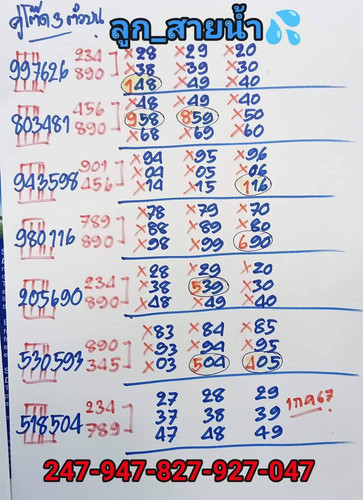 คู่โต๊ด 3 ตัวบน ลูก_สายน้ำ
997626 234 890
×28 ×29 ×20
×38 ×39 ×30
148 ×49 ×40
803481 456 890
×48 ×49 ×40
958 859 ×50
×68 ×69 ×60
943598 901 456
×94 ×95 ×96
×04 ×05 ×06
×14 ×15 116
980116 789 890
×78 ×79 ×70
×88 ×89 ×80
×98 ×99 690
205690 234 890
×28 ×29 ×20
×38 539 ×30
×48 ×49 ×40
530593 890 345
×83 ×84 ×85
×93 ×94 ×95
×03 504 405
518504 234 789
27 28 29
37 38 39
47 48 49
1กค67
247-947-827-927-047